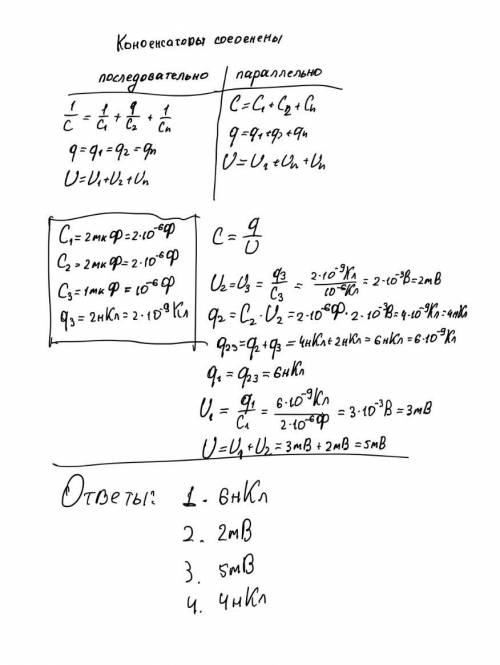 Конденсаторы соединены
последовательно | параллельно
1/C = 1/C₁ + 1/C₂ + 1/Cn
C = C₁ + C₂ + Cn
q = q₁ = q₂ = qn
q = q₁ + q₂ + qn
U = U₁ + U₂ + Un
U = U₂ + Un + Un
C₁ = 2мкФ = 2·10⁻⁶Ф
C₂ = 2мкФ = 2·10⁻⁶Ф
C₃ = 1мкФ = 10⁻⁶Ф
q₃ = 2нКл = 2·10⁻⁹Кл
C = q/U
U₂ = U₃ = q₃/C₃ = 2·10⁻⁹Кл/10⁻⁶Кл = 2·10⁻³В = 2мВ
q₂ = C₂·U₂ = 2·10⁻⁶Ф·2·10⁻³В = 4·10⁻⁹Кл = 4нКл
q₂₃ = q₂ + q₃ = 4нКл + 2нКл = 6нКл = 6·10⁻⁹Кл
q₁ = q₂₃ = 6нКл
U₁ = q₁/C₁ = 6·10⁻⁹Кл/2·10⁻⁶Ф = 3·10⁻³В = 3мВ
U = U₁ + U₂ = 3мВ + 2мВ = 5мВ
Ответы: 1. 6нКл
2. 2мВ
3. 5мВ
4. 4нКл